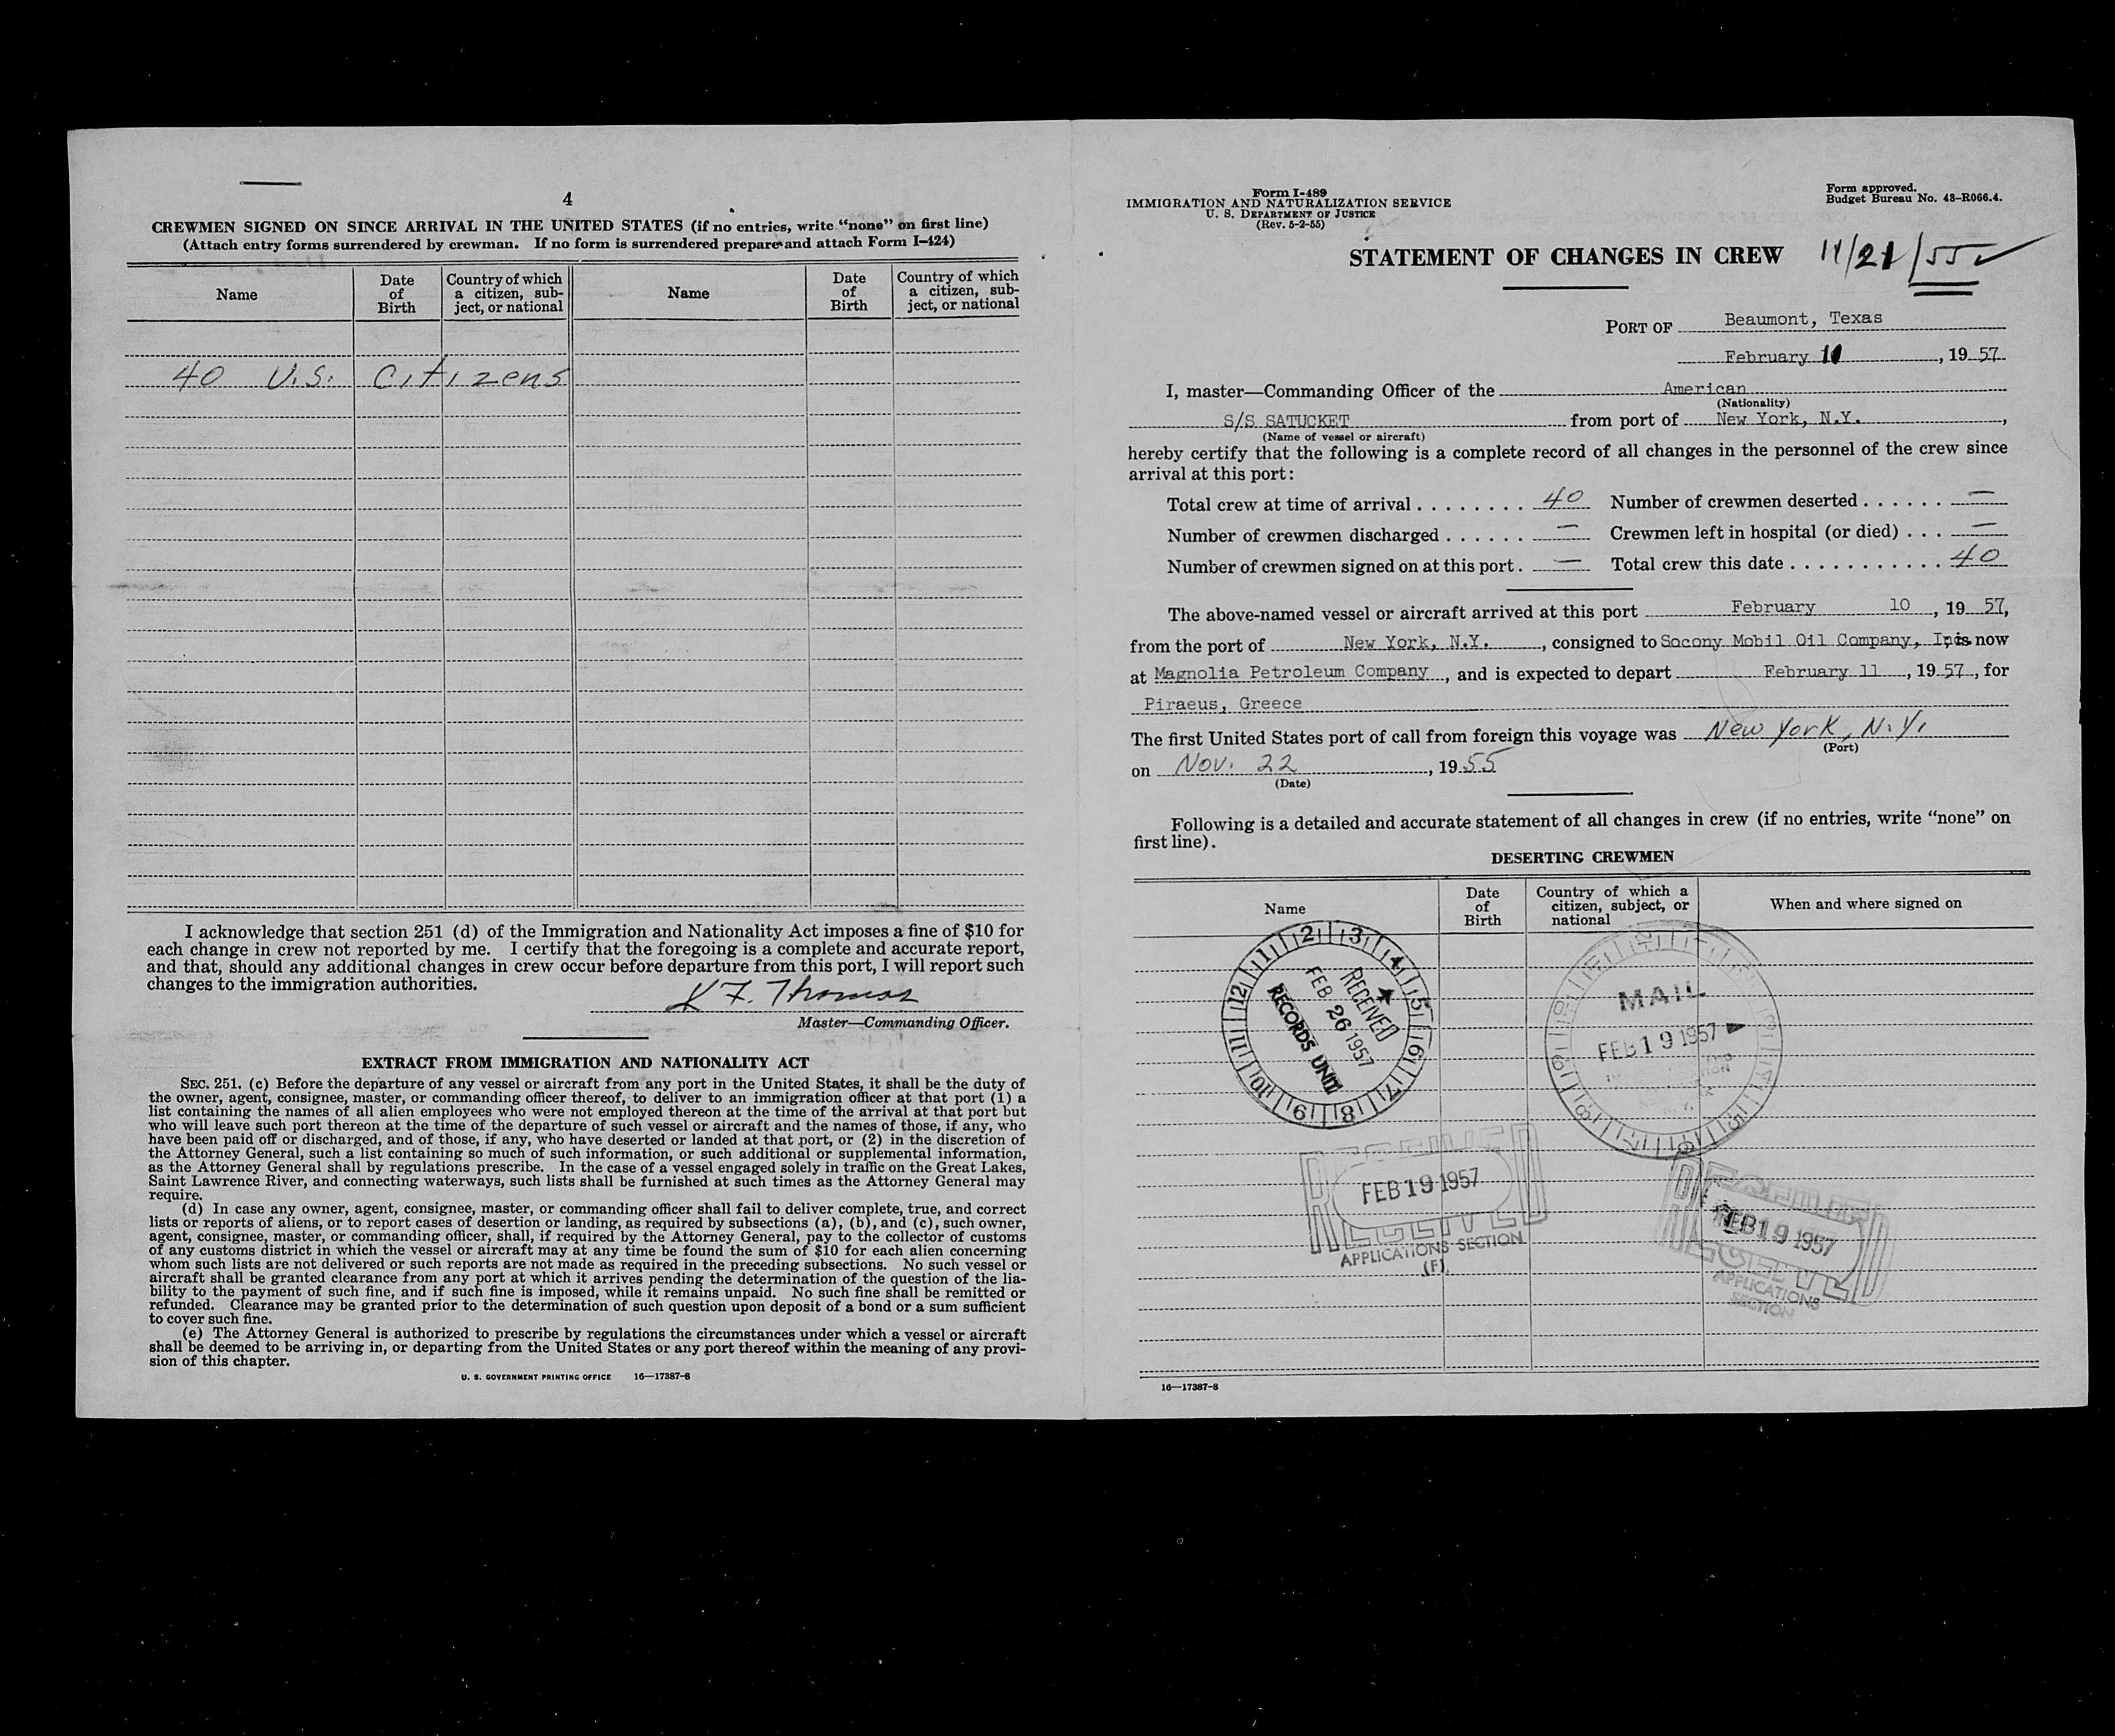 4
CREWMEN SIGNED ON SINCE ARRIVAL IN THE UNITED STATES (if no entries, write “none” on first line)
(Attach entry forms surrendered by crewman. If no form is surrendered prepare and attach Form I-424)
Name
Date of Birth
Country of which a citizen, subject, or national
Name
Date of Birth
Country of which a citizen, subject, or national
40 U.S. Citizens
I acknowledge that section 251 (d) of the Immigration and Nationality Act imposes a fine of $10 for
each change in crew not reported by me. I certify that the foregoing is a complete and accurate report,
and that, should any additional changes in crew occur before departure from this port, I will report such
changes to the immigration authorities.
K F. Thomas
Master—Commanding Officer.
EXTRACT FROM IMMIGRATION AND NATIONALITY ACT
SEC. 251. (c) Before the departure of any vessel or aircraft from any port in the United States, it shall be the duty of
the owner, agent, consignee, master, or commanding officer thereof, to deliver to an immigration officer at that port (1) a
list containing the names of all alien employees who were not employed thereon at the time of the arrival at that port but
who will leave such port thereon at the time of the departure of such vessel or aircraft and the names of those, if any, who
have been paid off or discharged, and of those, if any, who have deserted or landed at that port, or (2) in the discretion of
the Attorney General, such a list containing so much of such information, or such additional or supplemental information,
as the Attorney General shall by regulations prescribe. In the case of a vessel engaged solely in traffic on the Great Lakes,
Saint Lawrence River, and connecting waterways, such lists shall be furnished at such times as the Attorney General may
require.
(d) In case any owner, agent, consignee, master, or commanding officer shall fail to deliver complete, true, and correct
lists or reports of aliens, or to report cases of desertion or landing, as required by subsections (a), (b), and (c), such owner,
agent, consignee, master, or commanding officer, shall, if required by the Attorney General, pay to the collector of customs
of any customs district in which the vessel or aircraft may at any time be found the sum of $10 for each alien concerning
whom such lists are not delivered or such reports are not made as required in the preceding subsections. No such vessel or
aircraft shall be granted clearance from any port at which it arrives pending the determination of the question of the lia-
bility to the payment of such fine, and if such fine is imposed, while it remains unpaid. No such fine shall be remitted or
refunded. Clearance may be granted prior to the determination of such question upon deposit of a bond or a sum sufficient
to cover such fine.
(e) The Attorney General is authorized to prescribe by regulations the circumstances under which a vessel or aircraft
shall be deemed to be arriving in, or departing from the United States or any port thereof within the meaning of any provi-
sion of this chapter.
U. S. GOVERNMENT PRINTING OFFICE 16—17387-8
Form I-489
IMMIGRATION AND NATURALIZATION SERVICE
U. S. DEPARTMENT OF JUSTICE
(Rev. 5-2-55)
Form approved.
Budget Bureau No. 43-R066.4.
STATEMENT OF CHANGES IN CREW 11/21/55 ✓
PORT OF Beaumont, Texas
February 11, 1957
I, master—Commanding Officer of the American
(Nationality)
S/S SATUCKET from port of New York, N.Y.,
(Name of vessel or aircraft)
hereby certify that the following is a complete record of all changes in the personnel of the crew since
arrival at this port:
Total crew at time of arrival ........ 40 Number of crewmen deserted ...... —
Number of crewmen discharged ...... — Crewmen left in hospital (or died) ... —
Number of crewmen signed on at this port. — Total crew this date ........... 40
The above-named vessel or aircraft arrived at this port February 10, 1957,
from the port of New York, N.Y., consigned to Socony Mobil Oil Company, Inc. is now
at Magnolia Petroleum Company, and is expected to depart February 11, 1957, for
Piraeus, Greece
The first United States port of call from foreign this voyage was New York, N.Y.
(Port)
on Nov. 22, 1955
(Date)
Following is a detailed and accurate statement of all changes in crew (if no entries, write “none” on
first line).
DESERTING CREWMEN
Name
Date of Birth
Country of which a citizen, subject, or national
When and where signed on
12 1 2 3 4 5 6 7 8 9 10 11
RECEIVED
FEB 26 1957
RECORDS UNIT
MAIL
FEB 19 1957
RECEIVED
FEB 19 1957
APPLICATIONS SECTION
(F)
RECEIVED
FEB 19 1957
APPLICATIONS
SECTION
16—17387-8